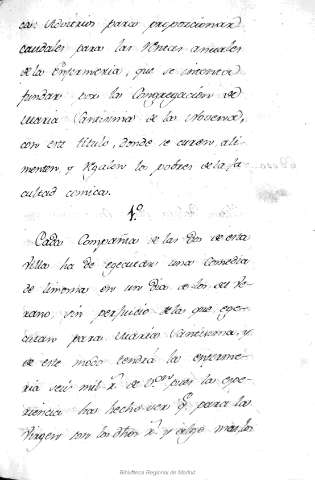 cas: Advitrios para proporcionar
caudales para las Rentas anuales
de la Enfermeria, que se intenta
fundar por la Congregacion de
Maria Santisima de la Novena,
con este titulo, donde se curen, ali-
menten, y Regalen los pobres de la fa-
cultad comica.
1.º
Cada Compañia de las dos de esta
Villa ha de egecutar una comedia
de limosna en un dia de los del Ve-
rano, sin perjuicio de las que ege-
cutan para Maria Santisima, y
de este modo tendrá la enferme-
ria seis mil r.s de v.on pues la espe-
riencia ha hecho ver q.e para la
Virgen son los otros r.s y algo mas los
Biblioteca Regional de Madrid